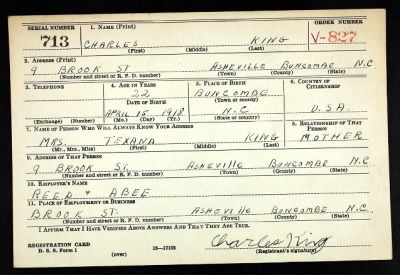 SERIAL NUMBER 1. NAME (Print) ORDER NUMBER
713 CHARLES KING V-827
(First) (Middle) (Last)
2. ADDRESS (Print)
9 BROOK ST ASHEVILLE BUNCOMBE N.C
(Number and street or R. F. D. number) (Town) (County) (State)
3. TELEPHONE 4. AGE IN YEARS 5. PLACE OF BIRTH 6. COUNTRY OF CITIZENSHIP
22 BUNCOMBE
DATE OF BIRTH (Town or county)
APRIL 15 1918 N.C U.S.A.
(Exchange) (Number) (Mo.) (Day) (Yr.) (State or country)
7. NAME OF PERSON WHO WILL ALWAYS KNOW YOUR ADDRESS 8. RELATIONSHIP OF THAT PERSON
MRS. TEXANA KING MOTHER
(Mr., Mrs., Miss) (First) (Middle) (Last)
9. ADDRESS OF THAT PERSON
9 BROOK ST. ASHEVILLE BUNCOMBE N.C
(Number and street or R. F. D. number) (Town) (County) (State)
10. EMPLOYER'S NAME
REED & ABEE
11. PLACE OF EMPLOYMENT OR BUSINESS
BROOK ST. ASHEVILLE BUNCOMBE N.C.
(Number and street or R. F. D. number) (Town) (County) (State)
I AFFIRM THAT I HAVE VERIFIED ABOVE ANSWERS AND THAT THEY ARE TRUE.
REGISTRATION CARD Charles King
D. S. S. Form 1 16-17105 (Registrant's signature)
(over)